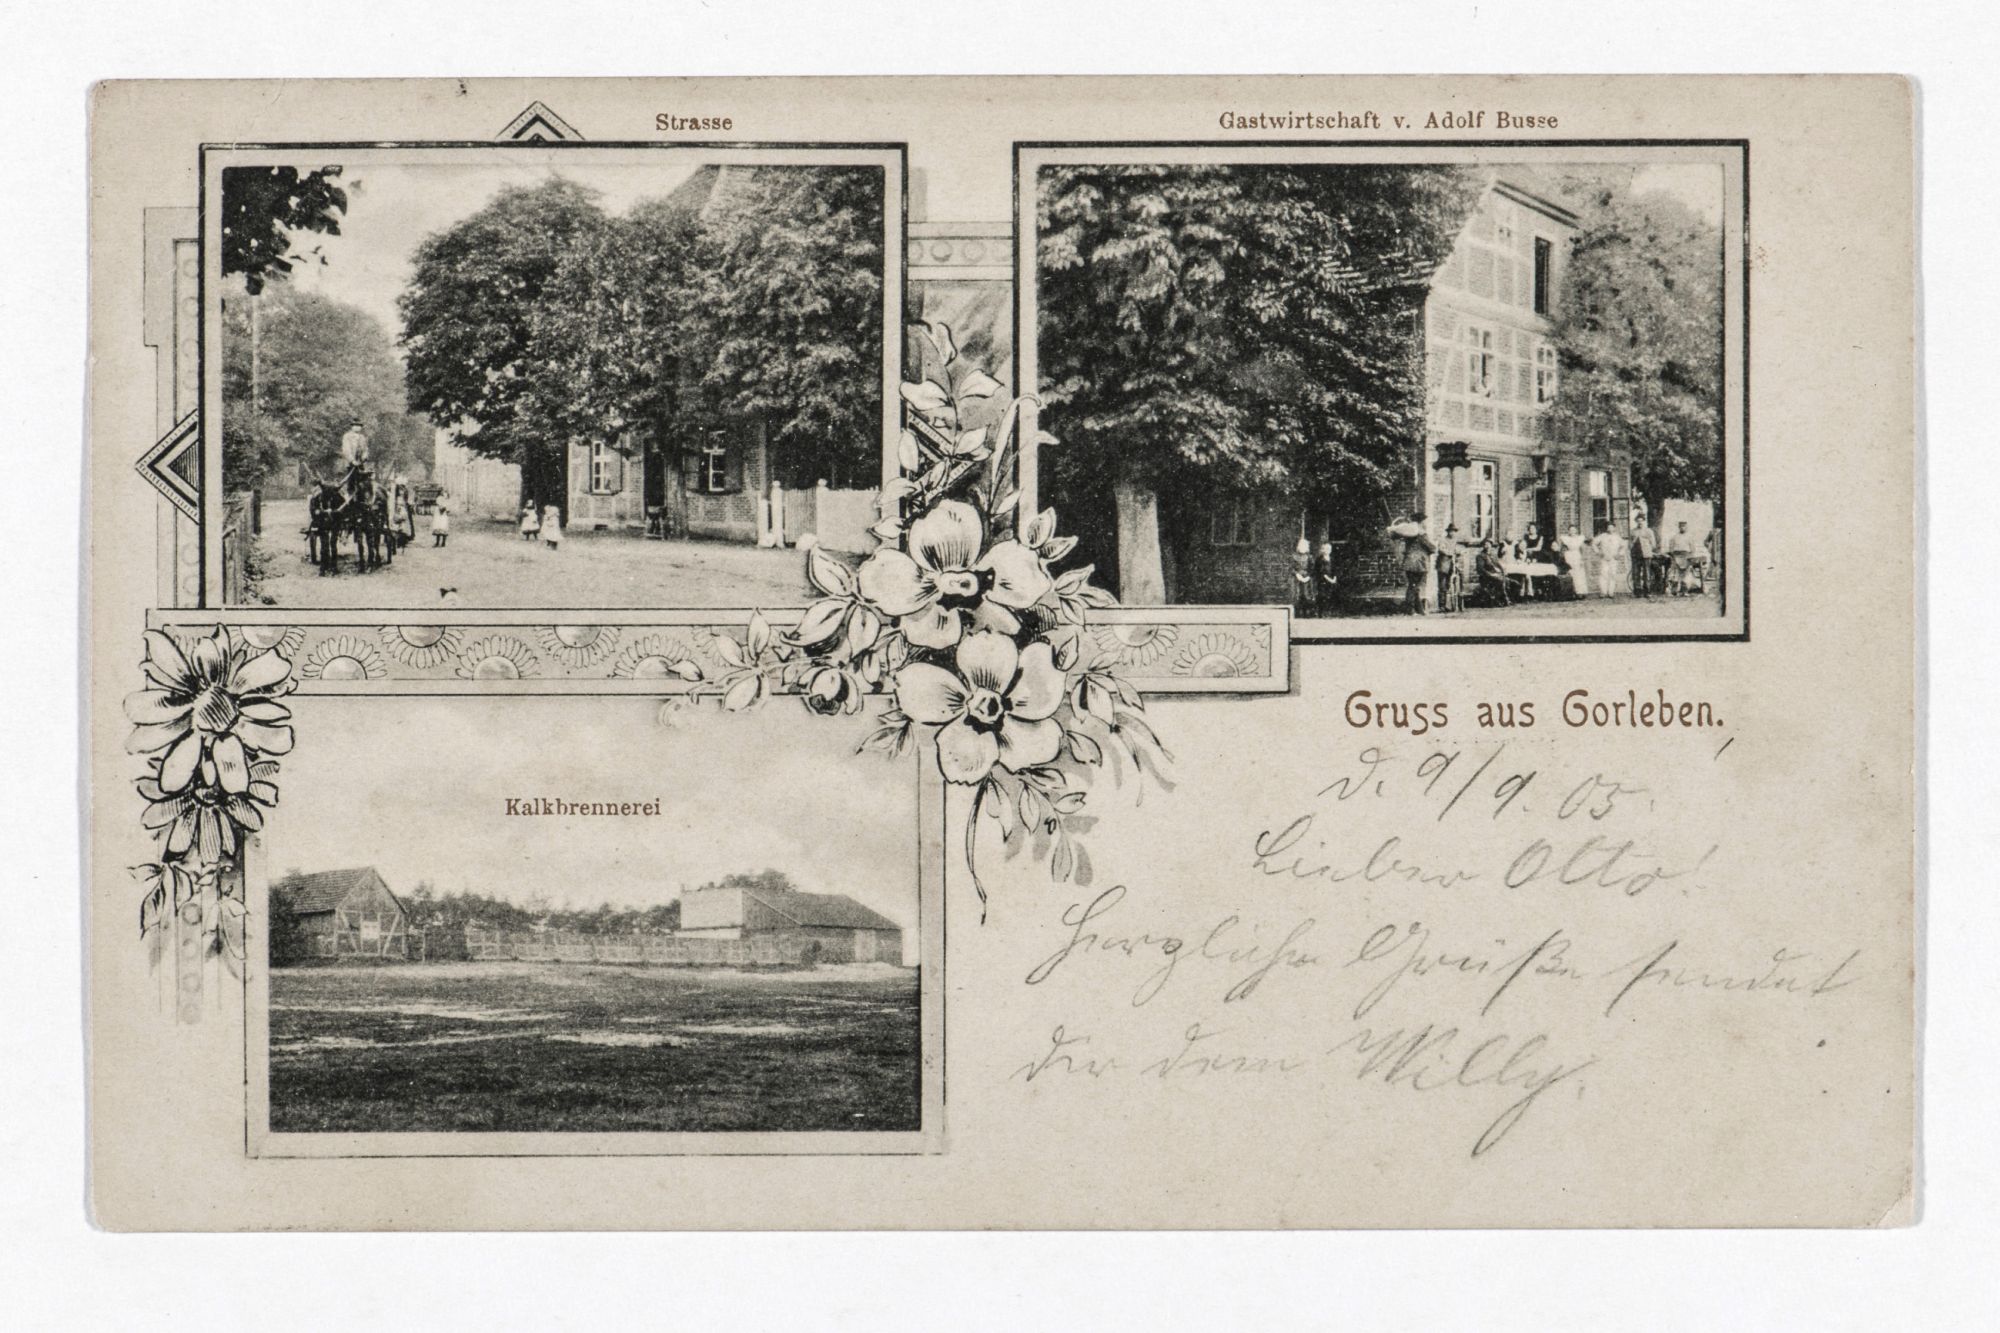 Strasse
Gastwirtschaft v. Adolf Busse
Kalkbrennerei
Gruss aus Gorleben.
d. 9/9. 05.
Lieber Otto!
Herzliche Grüße sendet
dir dein Willy.